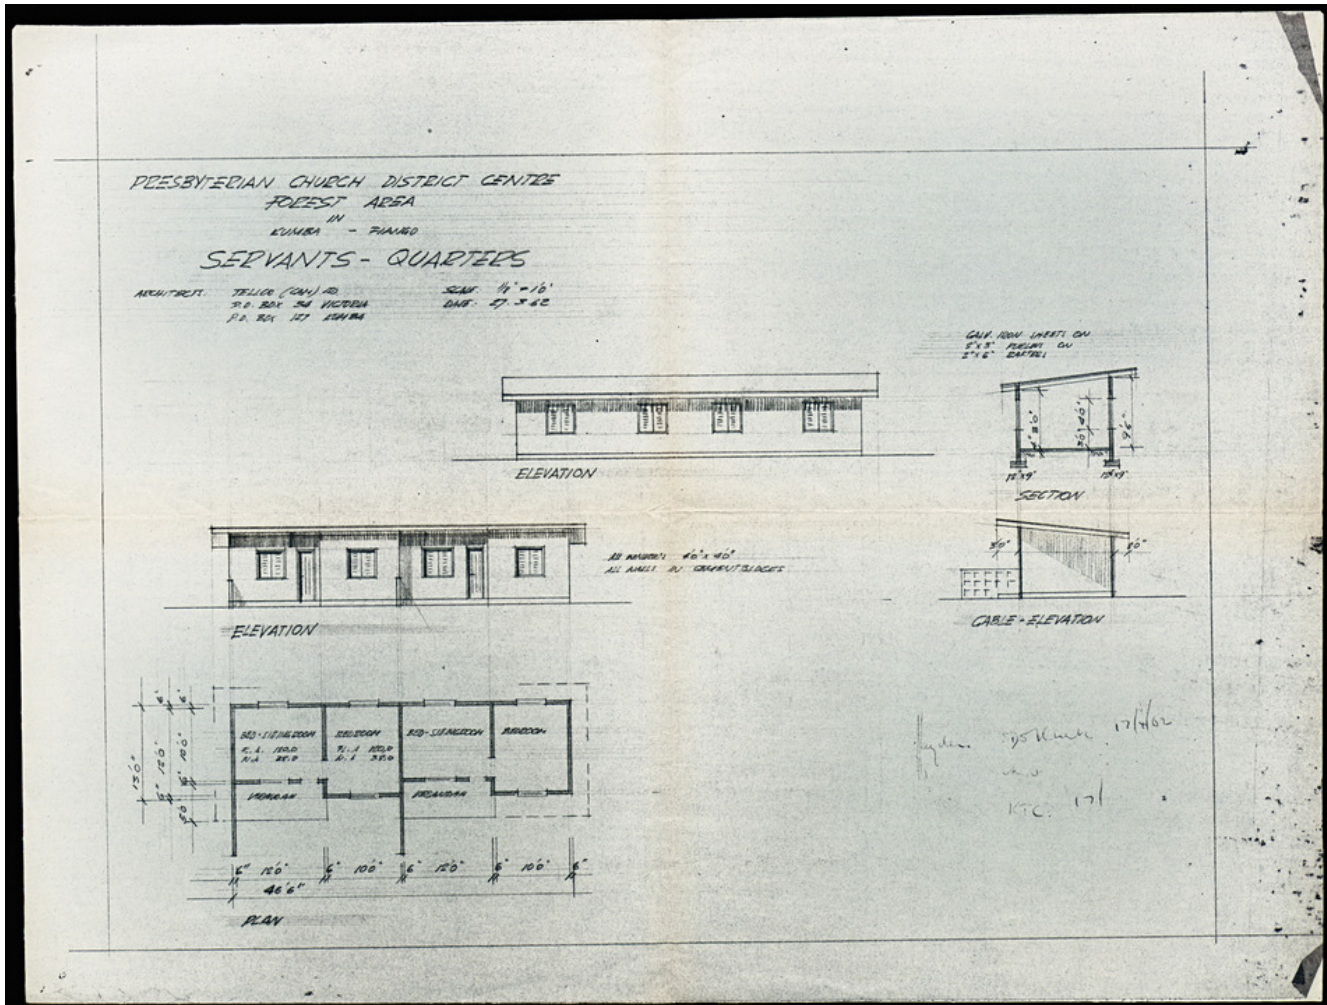 PRESBYTERIAN CHURCH DISTRICT CENTRE
FOREST AREA
IN
KUMBA - FIANGO
SERVANTS - QUARTERS
ARCHITECTS: (CAM)
P.O. BOX 34 VICTORIA
P.O. BOX 127 KUMBA
SCALE: 1/8" = 1'0"
DATE: 27.3.62
GALV. IRON SHEETS ON
2"x3" PURLINS ON
2"x6" RAFTERS
ELEVATION
9'6"
SECTION
ALL WINDOWS 4'0" x 4'0"
ALL WALLS IN CEMENTBLOCKS
ELEVATION
GABLE - ELEVATION
BED-SITTINGROOM
BEDROOM
BED-SITTINGROOM
BEDROOM
VERANDAH
VERANDAH
13'0"
6" 12'0" 6" 10'0" 6" 12'0" 6" 10'0" 6"
46'6"
PLAN